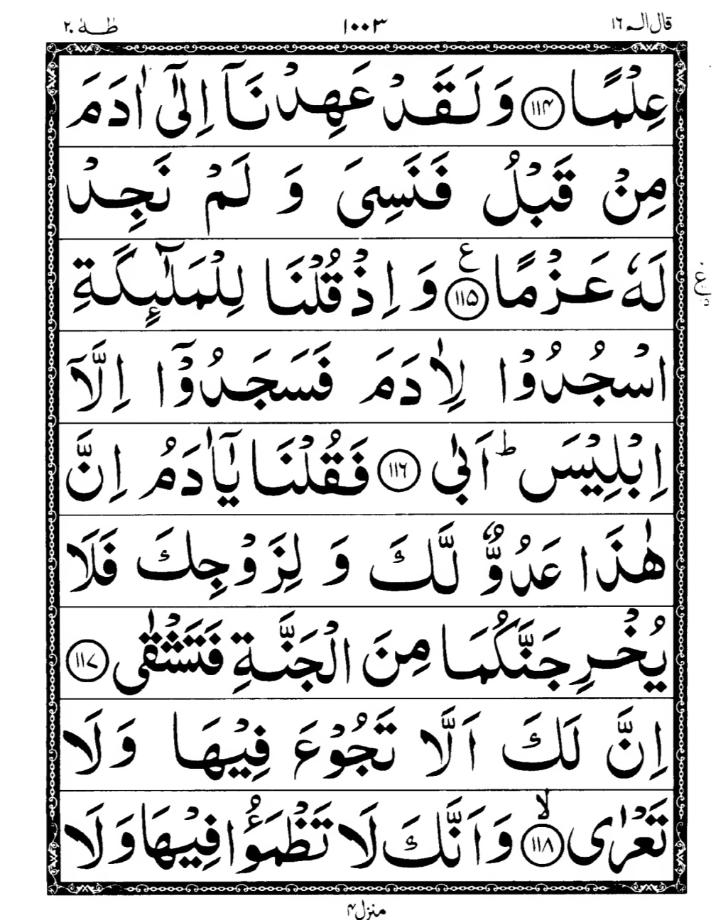 قال الم ١٦ ١٠٠٣ طٰهٰ ٢٠
عِلْمًا ﴿١١۴﴾ وَ لَقَدْ عَهِدْنَاۤ اِلٰۤى اٰدَمَ
مِنْ قَبْلُ فَنَسِىَ وَ لَمْ نَجِدْ
لَهٗ عَزْمًا ﴿١١٥﴾ ع وَ اِذْ قُلْنَا لِلْمَلٰٓئِكَةِ
اسْجُدُوْا لِاٰدَمَ فَسَجَدُوْۤا اِلَّاۤ
اِبْلِيْسَ ؕ اَبٰى ﴿١١٦﴾ فَقُلْنَا يٰۤاٰدَمُ اِنَّ
هٰذَا عَدُوٌّ لَّكَ وَ لِزَوْجِكَ فَلَا
يُخْرِجَنَّكُمَا مِنَ الْجَنَّةِ فَتَشْقٰى ﴿١١٧﴾
اِنَّ لَكَ اَلَّا تَجُوْعَ فِيْهَا وَ لَا
تَعْرٰى ﴿١١٨﴾ ۙ وَ اَنَّكَ لَا تَظْمَؤُا فِيْهَا وَ لَا
منزل ۴